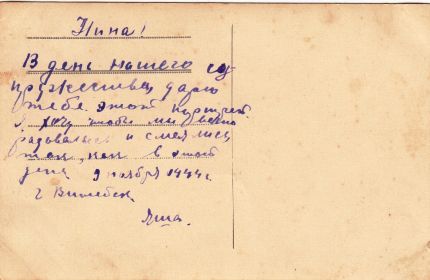 Нина!
В день нашего су
пружества дарю
тебе этот портрет.
Я хочу чтобы мы вечно
радовались и смеялись
так, как в этот
день 9 ноября 1944 г.
г Витебск
Яша.